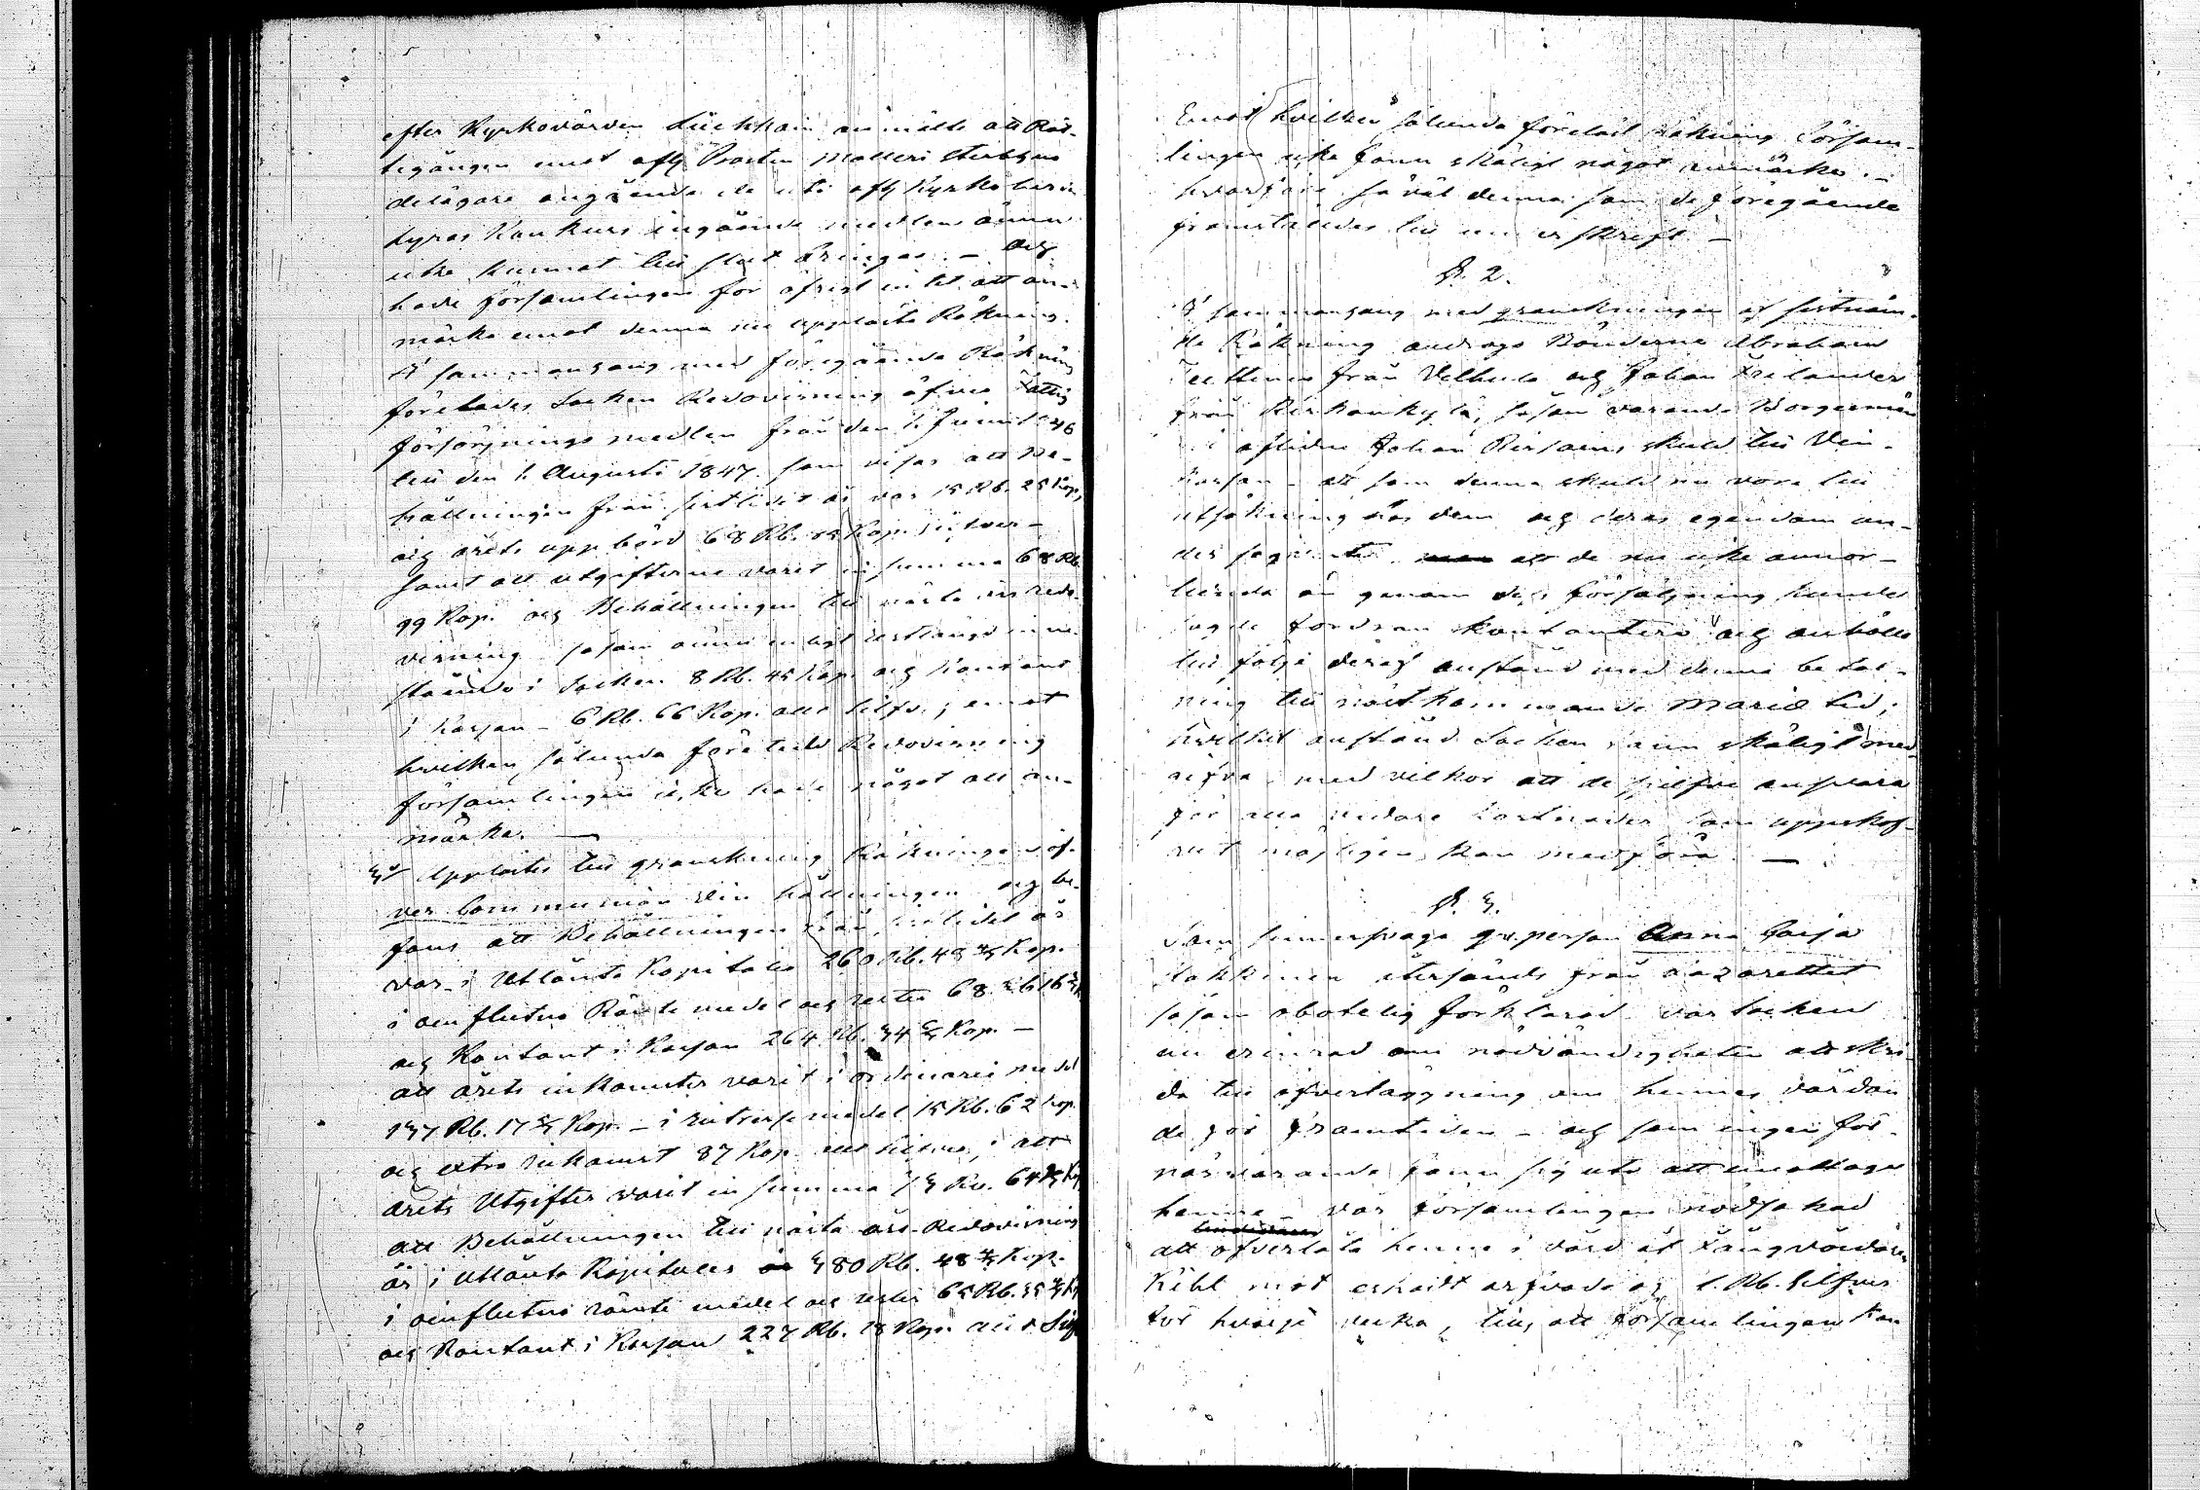 efter Kyrkovärden anmälte att Rät-
tegången emot afl. Prosten Molleri Sterbhus
delägare angående de uti afl. Kyrkoherr
Lyras Konkurs ingående medlem ännu
icke kunnat till slut bringas. – och
hade församlingen för öfrigt intet att an-
märka emot denna nu upplästa Räkning.
I sammanhang med föregående Räkning
företedes Socken Redovisning öfver Fattig
försörjnings medlen från den 1. Junii 1846
till den 1. Augusti 1847. som visar att Be-
hållningen från sistlidet år var 15 Rb. 25 Kop,
och årets uppbörd 68 Rb. Kop. silfver –
samt att utgifterne varit in summa 68 Rb.
99 Kop. och Behållningen till nästa års redo-
visning såsom ännu enligt restlängd inne-
stående i Socken 8 Rb. 45 Kop. och Kontant
i Kassan – 6 Rb. 66 Kop. allt silfv.; emot
hvilken sålunda företedd Redovisning
församlingen icke hade något att an-
märka. —
Upplästes till granskning Räkningen öf-
ver Communion vin hållningen och be-
fans att Behållningen från sistlidet år
var i Utlånta Kapitaler 260 Rb. 48 Kop.
i oinflutne Ränte medel och rester 68
och Kontant i Kassan 264 Rb. Kop. –
att årets inkomster varit i ordinarie medel
Rb. 17 Kop. – i intresse medel 15 Rb. 62 Kop.
och extra inkomst 87 Kop. allt silfver, att
årets Utgifter varit in summa
att Behållningen till nästa års Redovisning
är i utlånta Kapitaler 480 Rb. 48 Kop.
i oinflutne ränte medel och rester 65 Rb.
och Kontant i Kassan 227 Rb. 18 Kop. allt Silf
Emot hvilken sålunda företedd räkning Försam-
lingen icke fann skäligt något anmärka. –
hvarföre så väl denna som de föregående
framstäldes till underskrift –
§. 2.
I sammanhang med granskningen af sistnäm-
de Räkning androgo Bönderne Abraham
från och Johan Frilander
från Kirkonkylä, såsom varande Borgesmän
i aflidne Johan skuld till Vin-
kassan – att som denna skuld nu vore till
utsökning hos dem och deras egendom un-
der att de nu icke annor-
lunda än genom dess försäljning kunde
sagde fordran kontantera och anhölle
till följe deraf anstånd med denna betal-
ning till nästkommande Mariæ tid,
hvilket anstånd Socken fann skäligt med-
gifva, med vilkor att de sjelfve ansvara
för alla vidare kostnader som uppskof-
vet möjligen kan medföra. —
§. 3.
Som qv.person Anna Caisa
återsändt från Lazarettet
såsom obotelig förklarad var Socken
nu erinrad om nödvändigheten att skri-
da till öfverläggning om hennes vårdan-
de för framtiden – och som ingen för-
närvarande fann sig uti att emottaga
henne – var församlingen nödsakad
att öfverlåta henne i vård åt Fångvårdaren
Kihl mot erhållit arfvode af 1. Rb. Silfver
för hvarje vecka, tills att församlingen kan